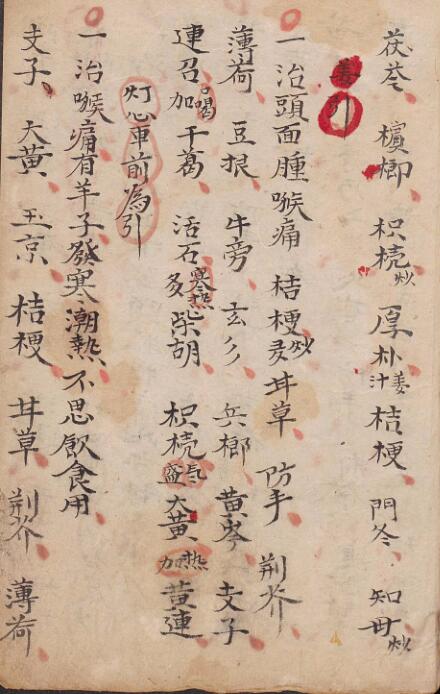 茯苓 檳榔 枳殼炒 厚朴姜汁 桔梗 門冬 知母炒
姜引
一治頭面腫喉痛 桔梗炒 甘草 防手 荆芥
薄荷 豆根 牛旁 玄彡 兵榔 黄岑 支子
連召 加渴干葛 活石 多寒熱柴胡 枳殼 氣盛大黄 加熱黄連
灯心車前為引
一治喉痛有羊子發寒潮熱不思飲食用
支子 大黄 玉京 桔梗 甘草 荆芥 薄荷